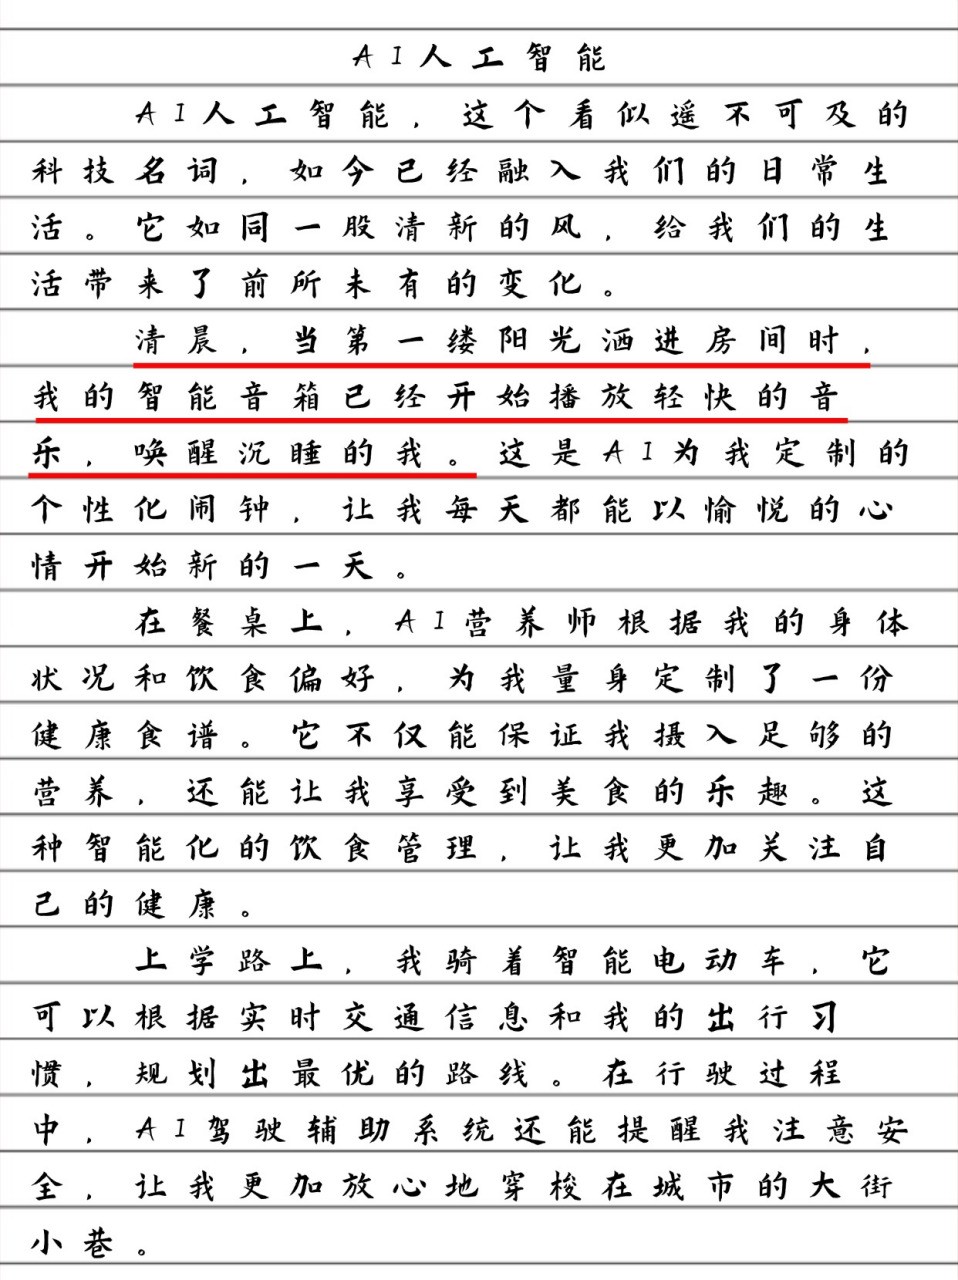 AI人工智能
AI人工智能，这个看似遥不可及的
科技名词，如今已经融入我们的日常生
活。它如同一股清新的风，给我们的生
活带来了前所未有的变化。
清晨，当第一缕阳光洒进房间时，
我的智能音箱已经开始播放轻快的音
乐，唤醒沉睡的我。这是AI为我定制的
个性化闹钟，让我每天都能以愉悦的心
情开始新的一天。
在餐桌上，AI营养师根据我的身体
状况和饮食偏好，为我量身定制了一份
健康食谱。它不仅能保证我摄入足够的
营养，还能让我享受到美食的乐趣。这
种智能化的饮食管理，让我更加关注自
己的健康。
上学路上，我骑着智能电动车，它
可以根据实时交通信息和我的出行习
惯，规划出最优的路线。在行驶过程
中，AI驾驶辅助系统还能提醒我注意安
全，让我更加放心地穿梭在城市的大街
小巷。